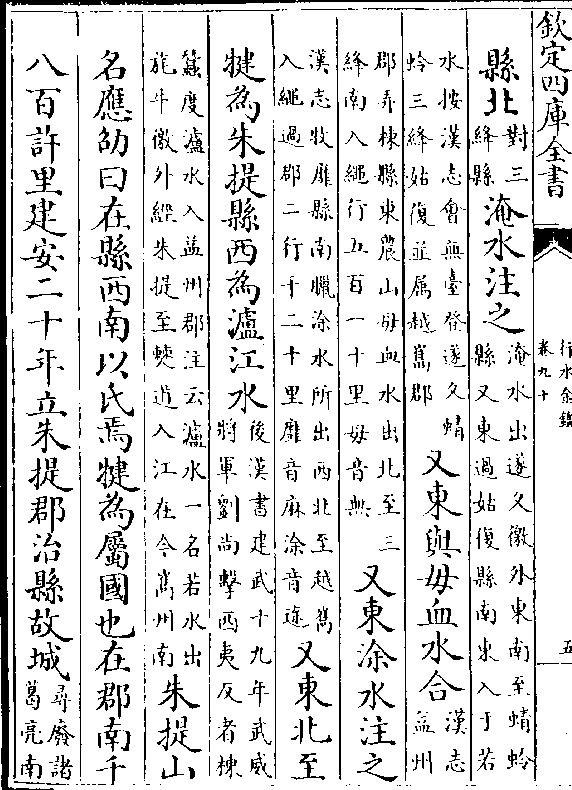 欽定四庫全書
行水金鑑
卷九十
五
縣北對三絳縣淹水注之淹水出遂久徼外東南至蜻蛉縣又東過姑復縣南東入于若
水按漢志會無臺登遂久蜻蛉三絳姑復並屬越嶲郡又東與毋血水合漢志益州
郡弄棟縣東農山毋血水出北至三絳南入繩行五百一十里毋音無又東涂水注之
漢志牧靡縣南臘涂水所出西北至越嶲入繩過郡二行千二十里靡音麻涂音途又東北至
犍為朱提縣西為瀘江水後漢書建武十九年武威將軍劉尚擊西夷反者棟
蠶度瀘水入益州郡注云瀘水一名若水出旄牛徼外經朱提至僰道入江在今嶲州南朱提山
名應劭曰在縣西南以氏焉犍為屬國也在郡南千
八百許里建安二十年立朱提郡治縣故城尋廢諸葛亮南